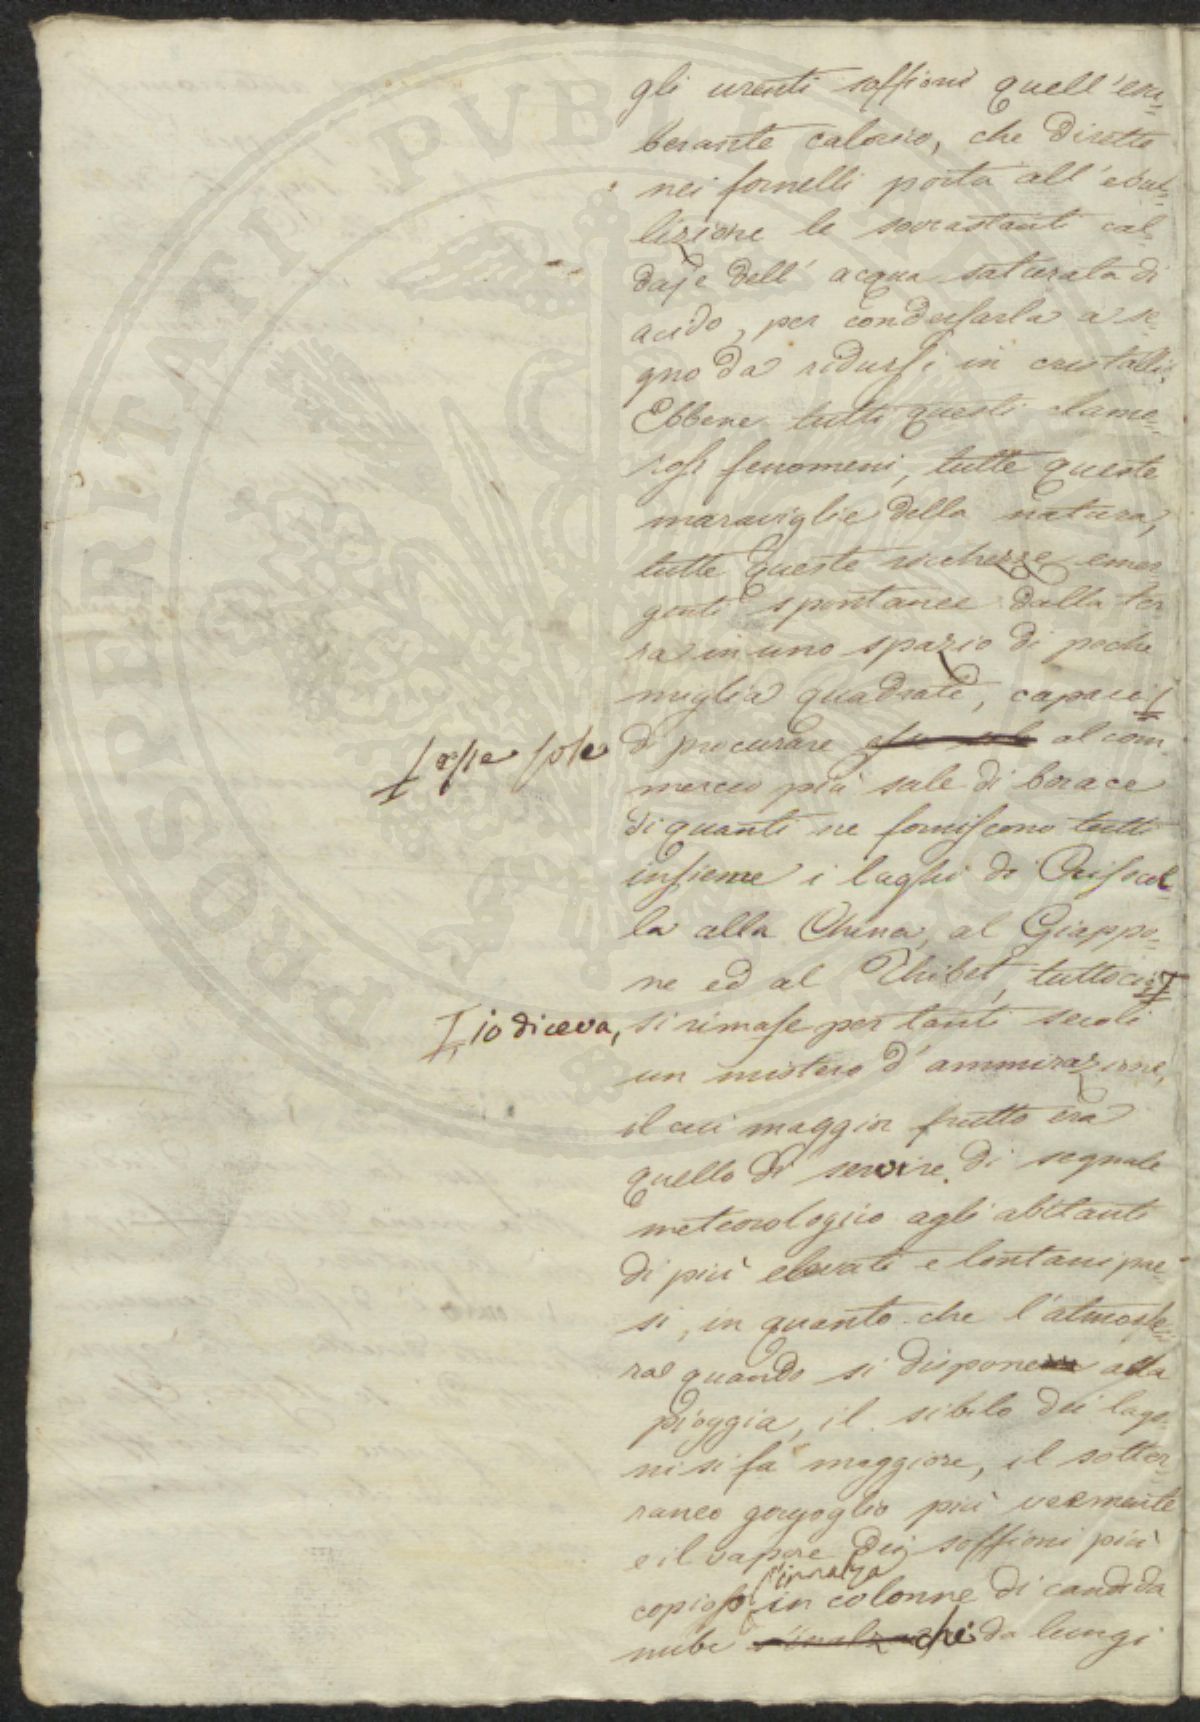 gli urenti soffioni quell'esu=
berante calorico, che diretto
nei fornelli porta all'ebul=
lizione le sovrastanti cal=
daje dell'acqua saturata di
acido, per condensarla a se=
gno da ridursi in cristalli.
Ebbene tutti questi clamo=
rosi fenomeni, tutte queste
maraviglie della natura,
tutte queste ricchezze emer
genti spontanee dalla ter
ra in uno spazio di poche
miglia quadrate, capaci
esse sole
di procurare esse sole al com=
mercio più sale di borace
di quanti ne forniscono tutti
insieme i laghi di
la alla China, al Giappo=
ne ed al Thibet, tuttociò
io diceva,
si rimase per tanti secoli
un mistero d'ammirazione,
il cui maggior frutto era
quello di servire di segnale
meteorologico agli abitanti
di più elevati e lontani pae=
si, in quanto che l'atmosfe=
ra quando si dispone alla
pioggia, il sibilo dei lago=
ni si fa maggiore, il sotter=
raneo gorgoglio più veemente
e il vapore dei soffioni più
s'innalza
copioso in colonne di candida
nube che da lungi
PROSPERITATI PVBLICAE